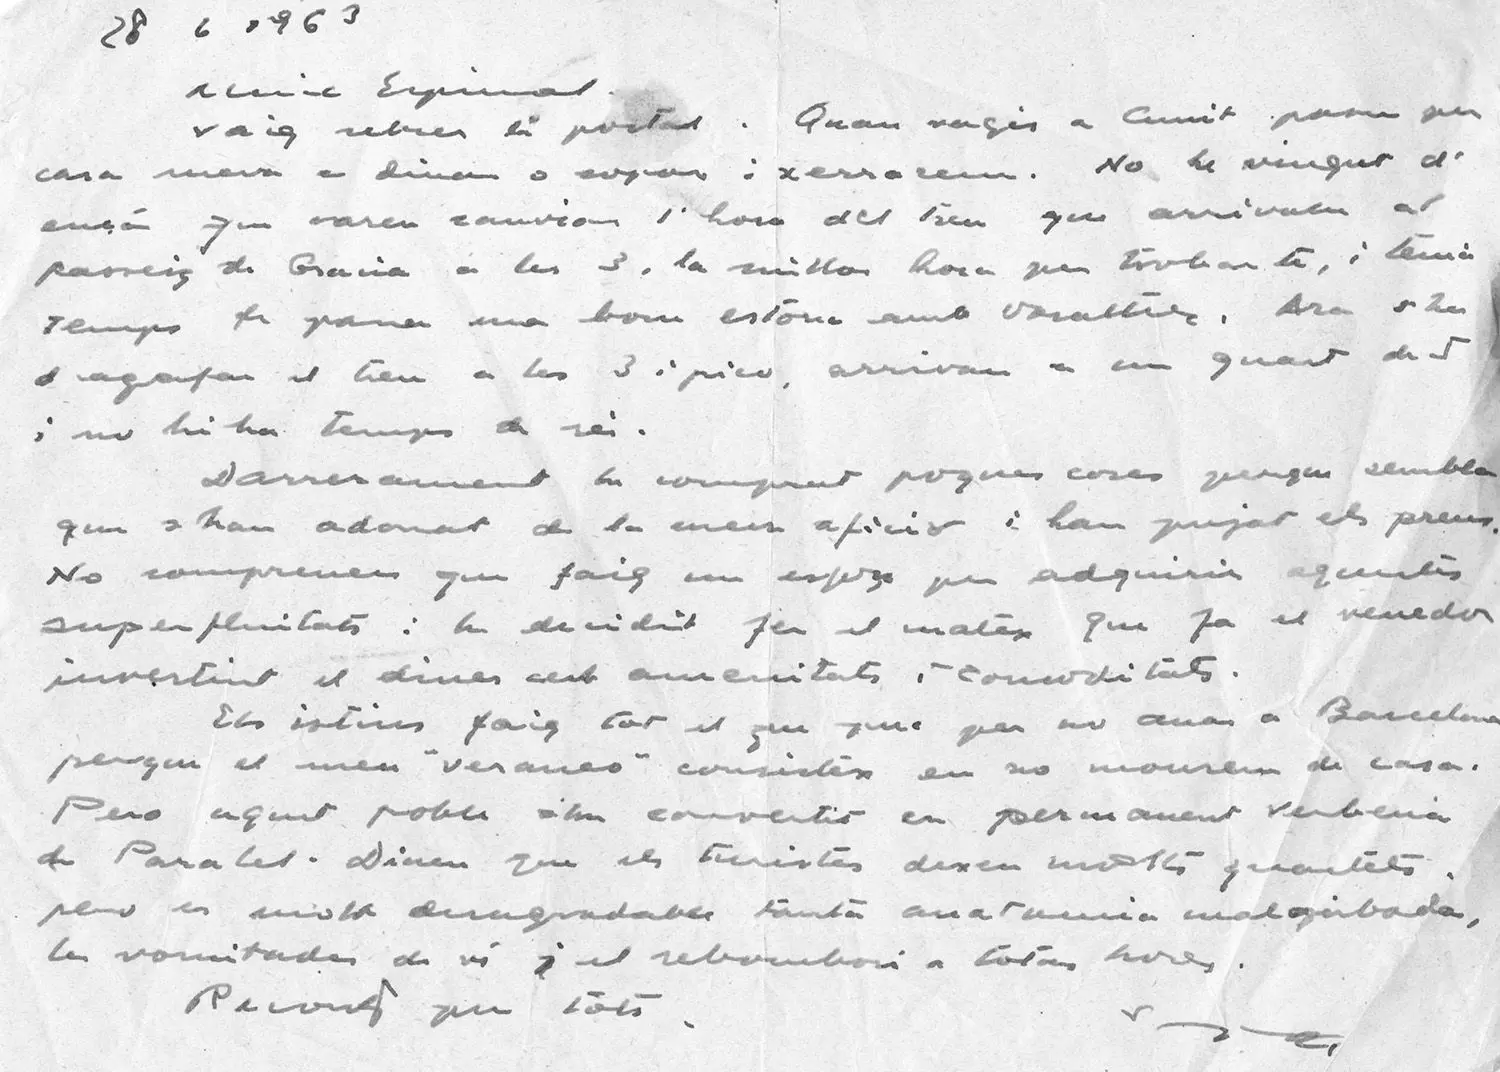 28 6 1963
Amic Espinal.
Vaig rebrer la postal. Quan vagis a Cunit passa per
casa meva a dinar o sopar i xerrarem. No he vingut d'
ençá que varen canviar l'hora del tren que arrivava al
Passeig de Gracia a les 3, la millor hora per trobarte, i tenia
temps de parar una bona estona amb. Ara s'ha
d'agafar el tren a les 3 i pico, arrivan a un quart de 5
i no hi ha temps de res.
Darrerament he comprat poques coses perque sembla
que s'han adonat de la meva afició i han pujat els preus.
No comprenen que faig un esforç per adquirir aquestes
superfluitats i he decidit fer el mateix que fa el venedor
invertint el diner amb amenitats i comoditats.
Els istius faig tot el que puc per no anar a Barcelona
perque el meu "veraneo" consisteix en no mourem de casa.
Pero aquest poble s'ha convertit en permanent verbena
de Paralel. Diuen que els turistes dexen molts quartets,
pero es molt desagradable tanta anatomia malgirbada,
les vomitades de vi i el rebombori a totas hores.
Records per tots.